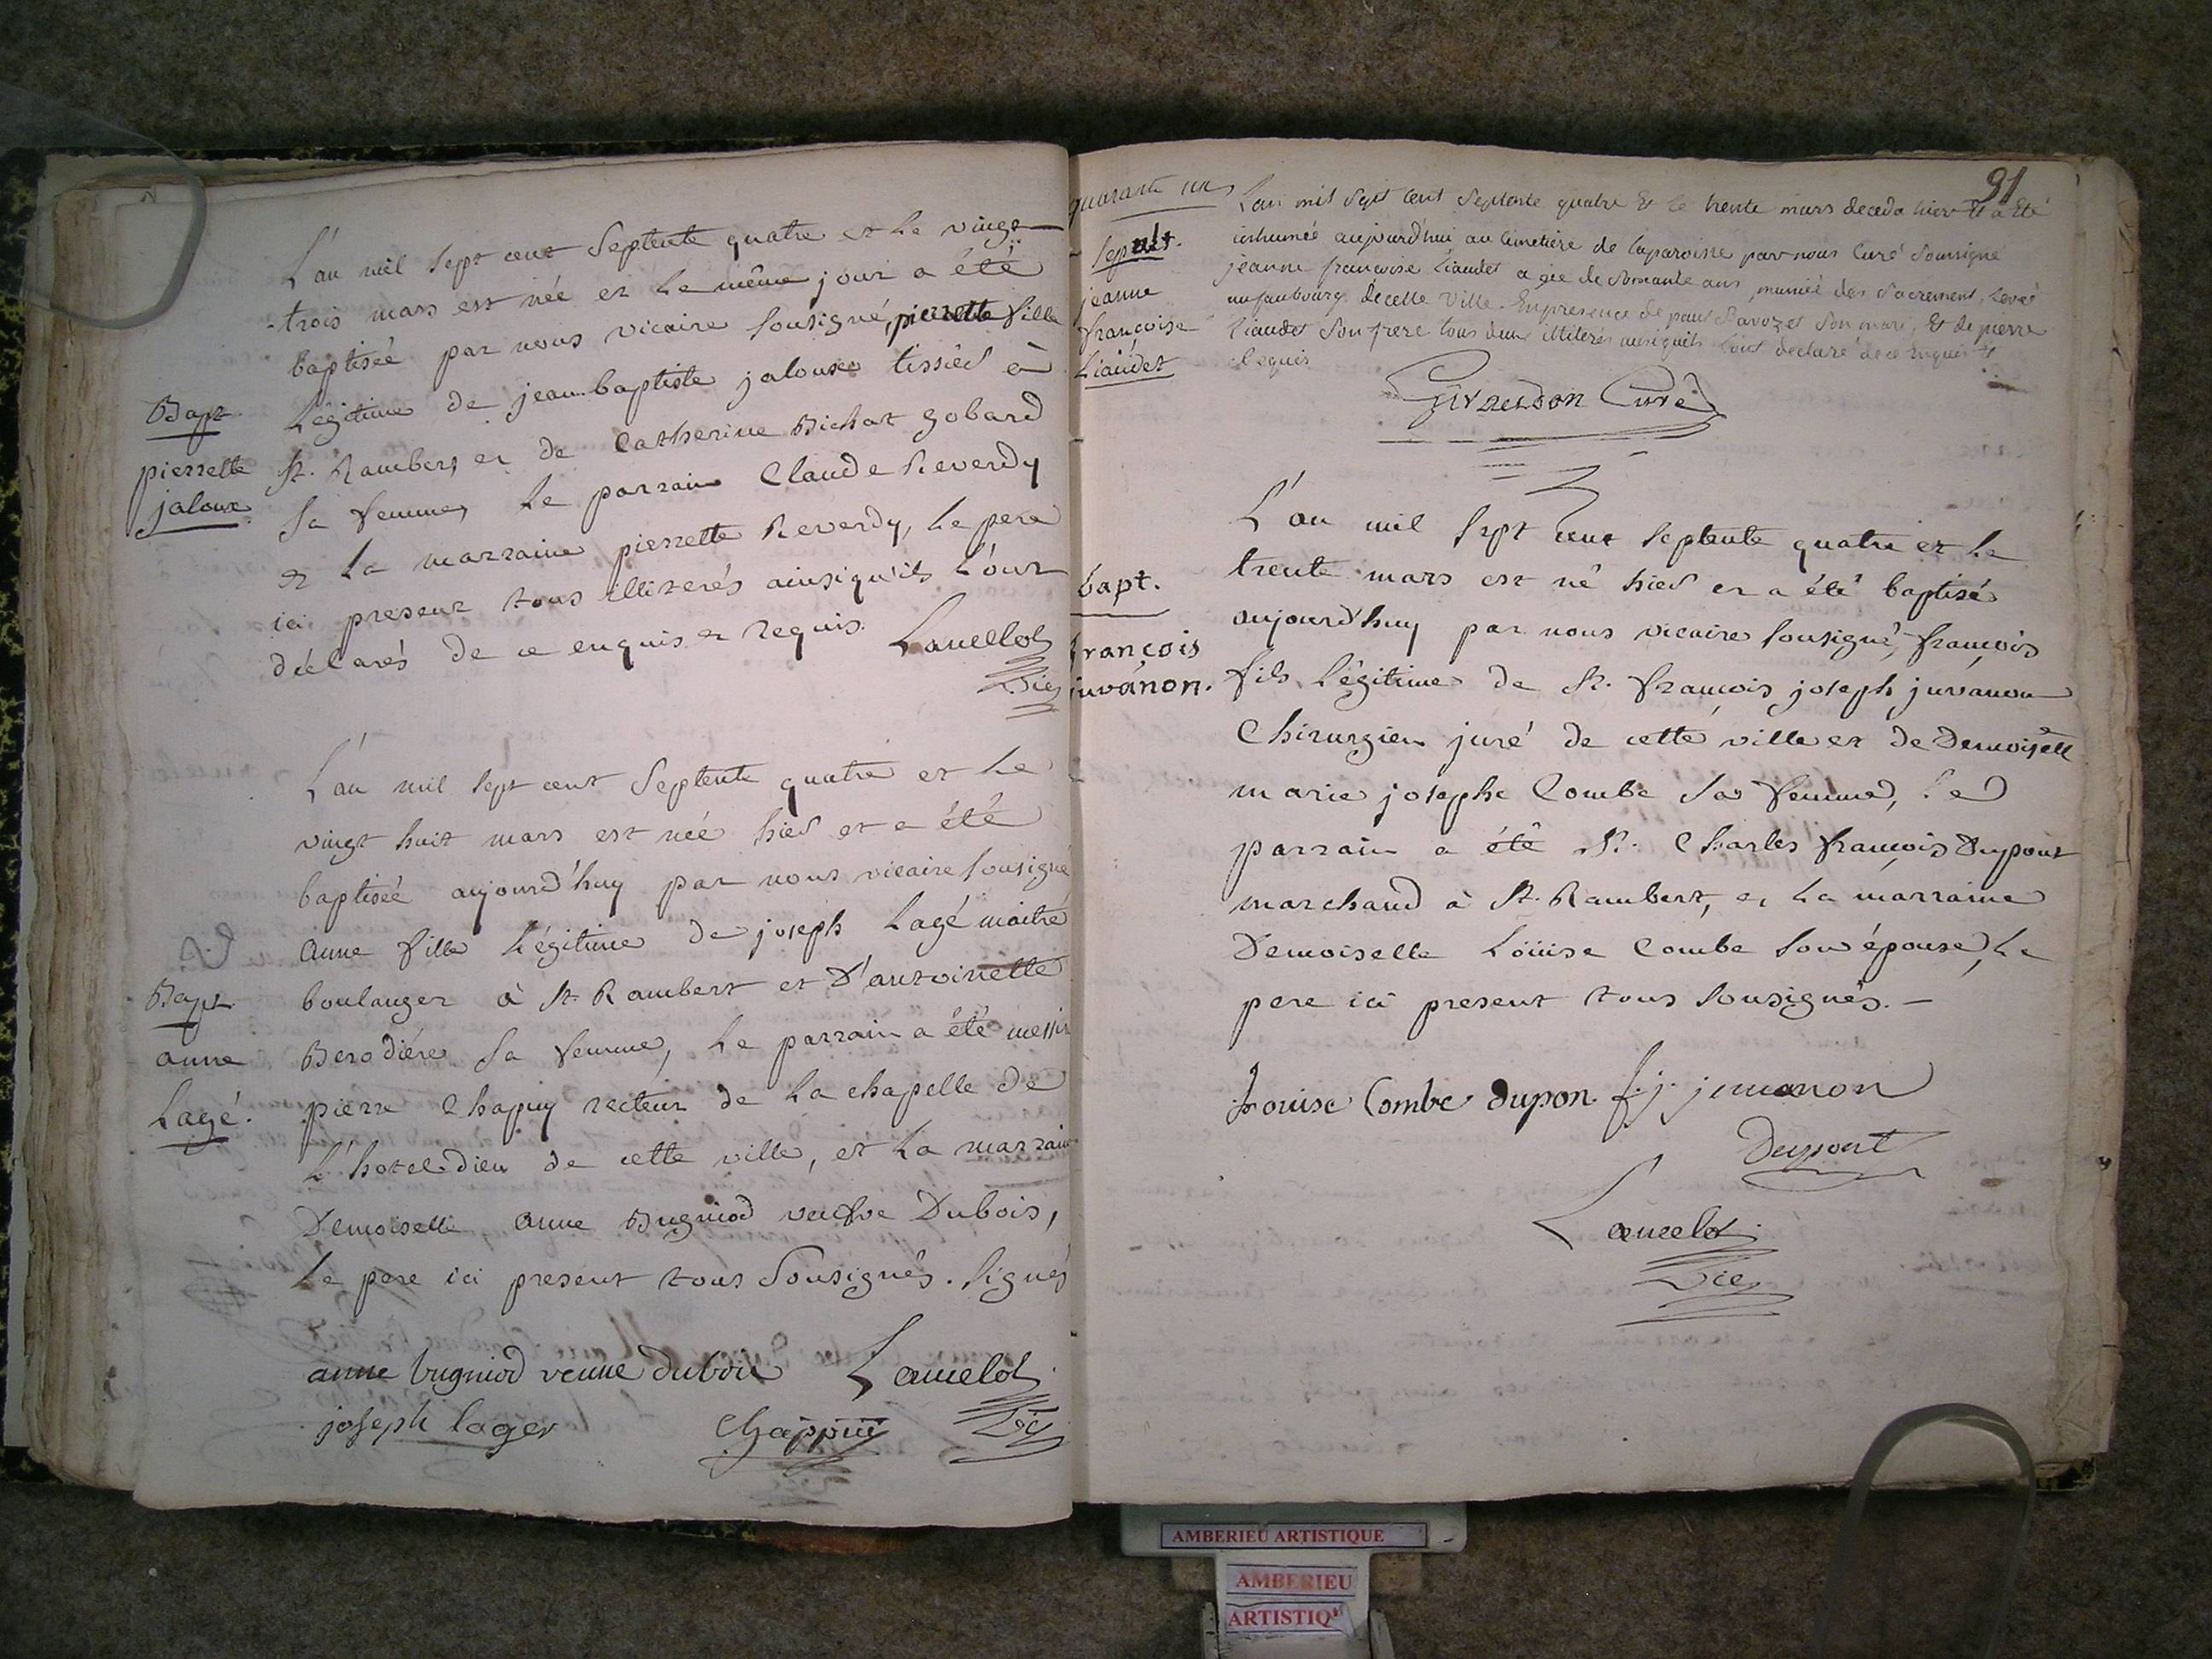 L'an mil sept cent septente quatre et le vingt
trois mars est née et le même jour a été
baptisée par nous vicaire sousigné, pierrette fille
Bapt.
pierrette
jaloux
légitime de jean baptiste jaloux tissier à
St. Rambert et de Catherine Bichat gobard
sa femme, le parrain Claude Reverdy
et la marraine pierrette Reverdy, le pere
ici present tous illiterés ainsiqu'ils l'ont
déclarés de ce enquis et requis. Lancelot
Vic
L'an mil sept cent septente quatre et le
vingt huit mars est née hier et a été
baptisée aujourd'huy par nous vicaire sousigné
anne fille légitime de joseph Lagé maitre
Bapt.
anne
Lagé.
boulanger à St. Rambert et D'antoinette
Berodiére sa femme, le parrain a été messir
pierre Chapuy recteur de la chapelle de
L'hotel dieu de cette ville, et la marraine
Demoiselle anne Bugniod veufve Dubois,
le pere ici present tous sousignés. signés
anne bugniod veuve duboie Lancelot
joseph lager Chappuy Vic
quarante un
91
sepult.
jeanne
françoise
Liaudet
L'an mil sept cent septente quatre et le trente mars deceda hier et a été
inhumée aujourd'hui au cimetière de la paroisse par nous Curé soussigné
jeanne françoise Liaudet agée de soixante ans, muniée des sacrement,
au faubourg de cette ville. En presence de paul Savozet son mari, et de pierre
Liaudet son frere tous deux illiterés ainsiquils l'ont declaré de ce enquis et
requis
Giraudon Curé
bapt.
françois
juvanon.
L'an mil sept cent septente quatre et le
trente mars est né hier et a été baptisé
aujourd'huy par nous vicaire sousigné, françois
fils légitime de Sr. françois joseph juvanon
Chirurgien juré de cette ville et de Demoiselle
marie josephe Combe sa femme, le
parrain a été Sr. Charles françois Dupont
marchand à St. Rambert, et la marraine
Demoiselle Loüise Combe son épouse, le
pere ici present tous sousignés. -
Louise Combe dupon f. j. juvanon
Dupont
Lancelot
Vic
AMBERIEU ARTISTIQUE
AMBERIEU
ARTISTIQ